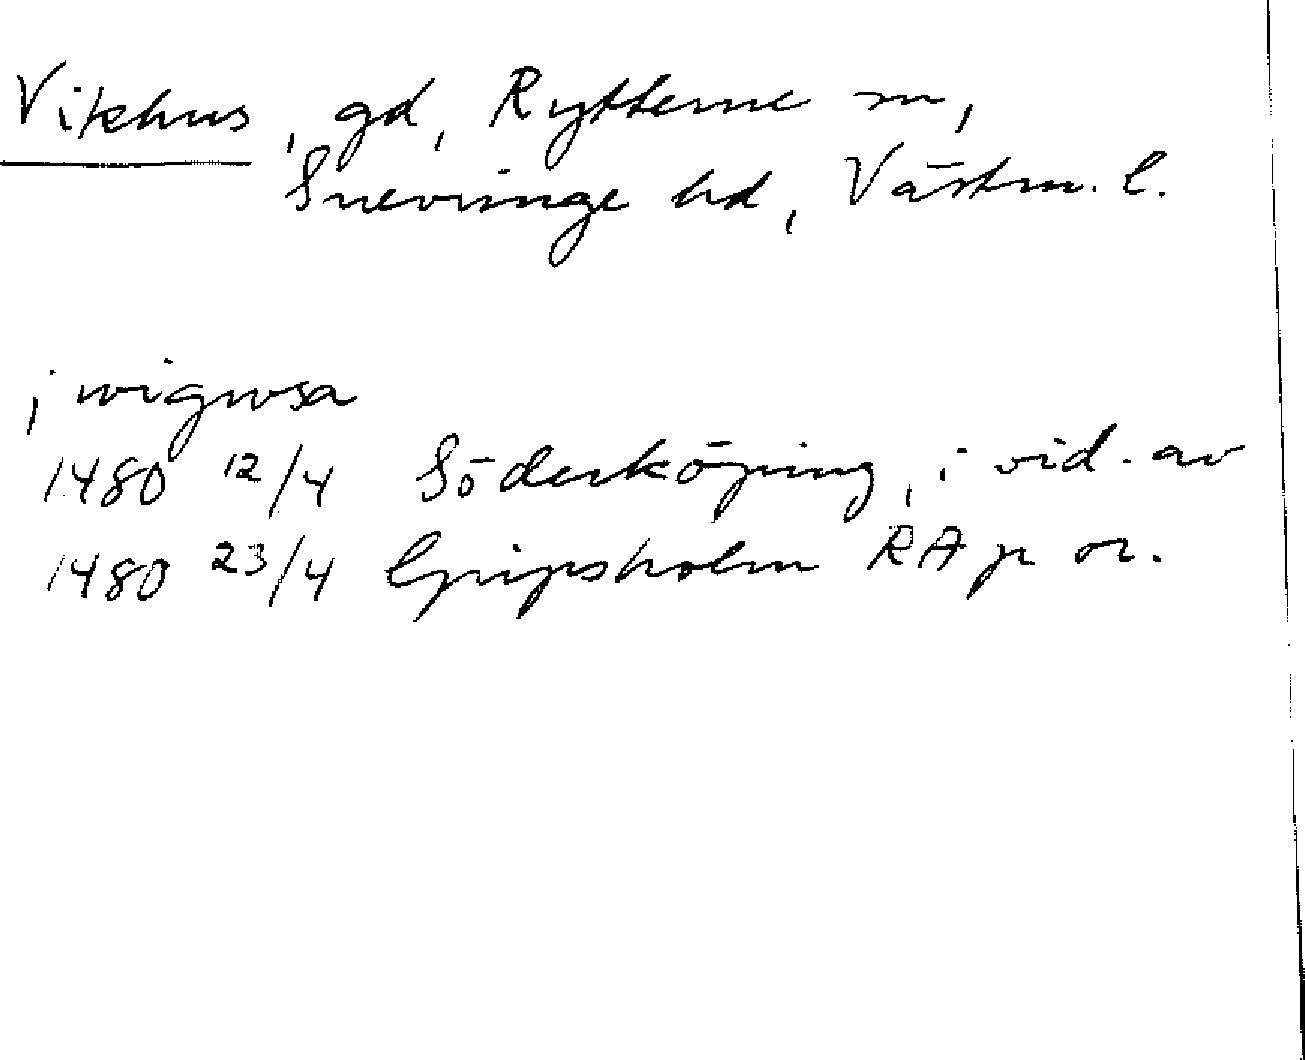 Vikhus, gd, Rytterne sn,
Snevringe hd, Västm. l.
j wigwsa
1480 12/4 Söderköping, i vid. av
1480 23/4 Gripsholm RA p or.